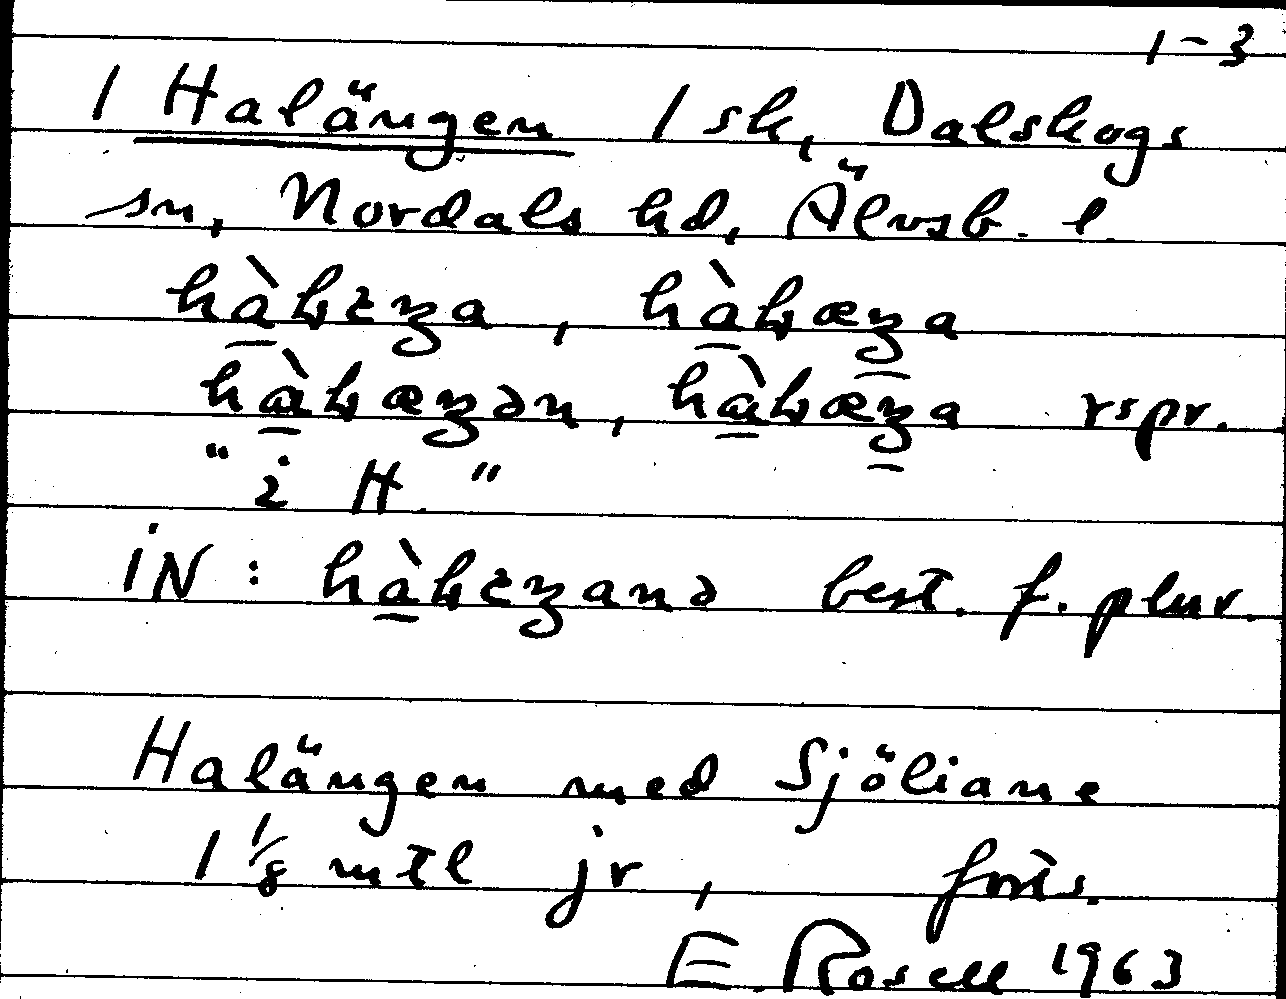 1-3
1 Halängen 1 sk, Dalskogs
sn, Nordals hd, Älvsb. l.
rspr.
"i H."
iN: best. f. plur.
Halängen med Sjöliane
1 1/8 mtl jr, forts.
E. Rosell 1963